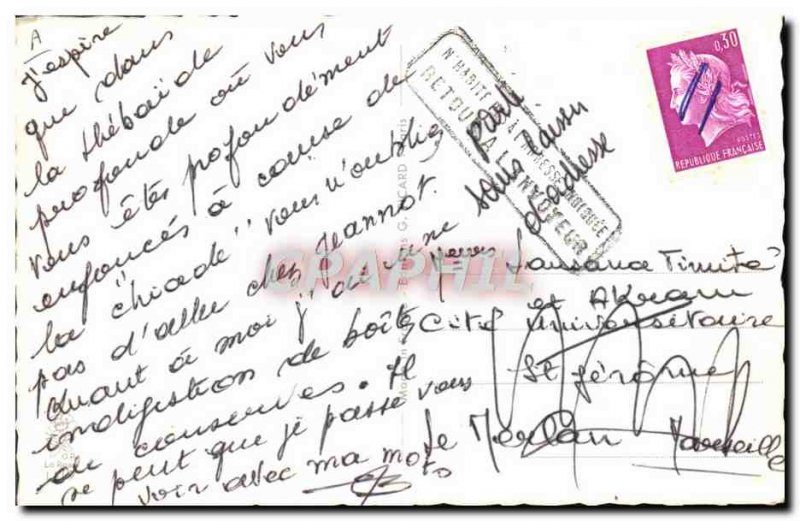 A
J'espère
que dans
la thébaïde
profonde où vous
vous êtes profondément
enfoncés à cause de
la "chiade" vous n'oubliez
pas d'aller chez Jeannot.
Quant à moi j'ai une
indigestion de boîtes
de conserves. Il
se peut que je passe vous
voir avec ma moto
N'HABITE PAS A L'ADRESSE INDIQUEE
RETOUR A L'ENVOYEUR
parti
sans laisser
d'adresse
0,30
POSTES
REPUBLIQUE FRANÇAISE
et Akram
Cité Universitaire
St Jérôme
Le Merlan Marseille
CPAPHIL